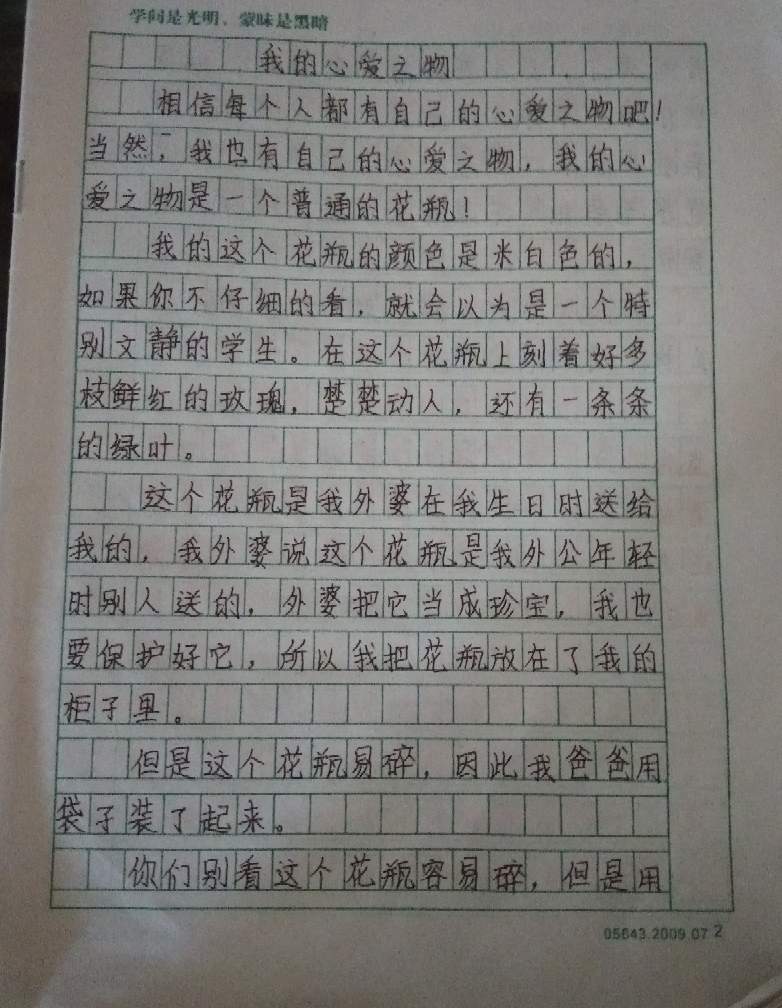 学问是光明、蒙昧是黑暗
我的心爱之物
相信每个人都有自己的心爱之物吧!
当然,我也有自己的心爱之物,我的心
爱之物是一个普通的花瓶!
我的这个花瓶的颜色是米白色的,
如果你不仔细的看,就会以为是一个特
别文静的学生。在这个花瓶上刻着好多
枝鲜红的玫瑰,楚楚动人,还有一条条
的绿叶。
这个花瓶是我外婆在我生日时送给
我的,我外婆说这个花瓶是我外公年轻
时别人送的,外婆把它当成珍宝,我也
要保护好它,所以我把花瓶放在了我的
柜子里。
但是这个花瓶易碎,因此我爸爸用
袋子装了起来。
你们别看这个花瓶容易碎,但是用
05643.2009.07 2